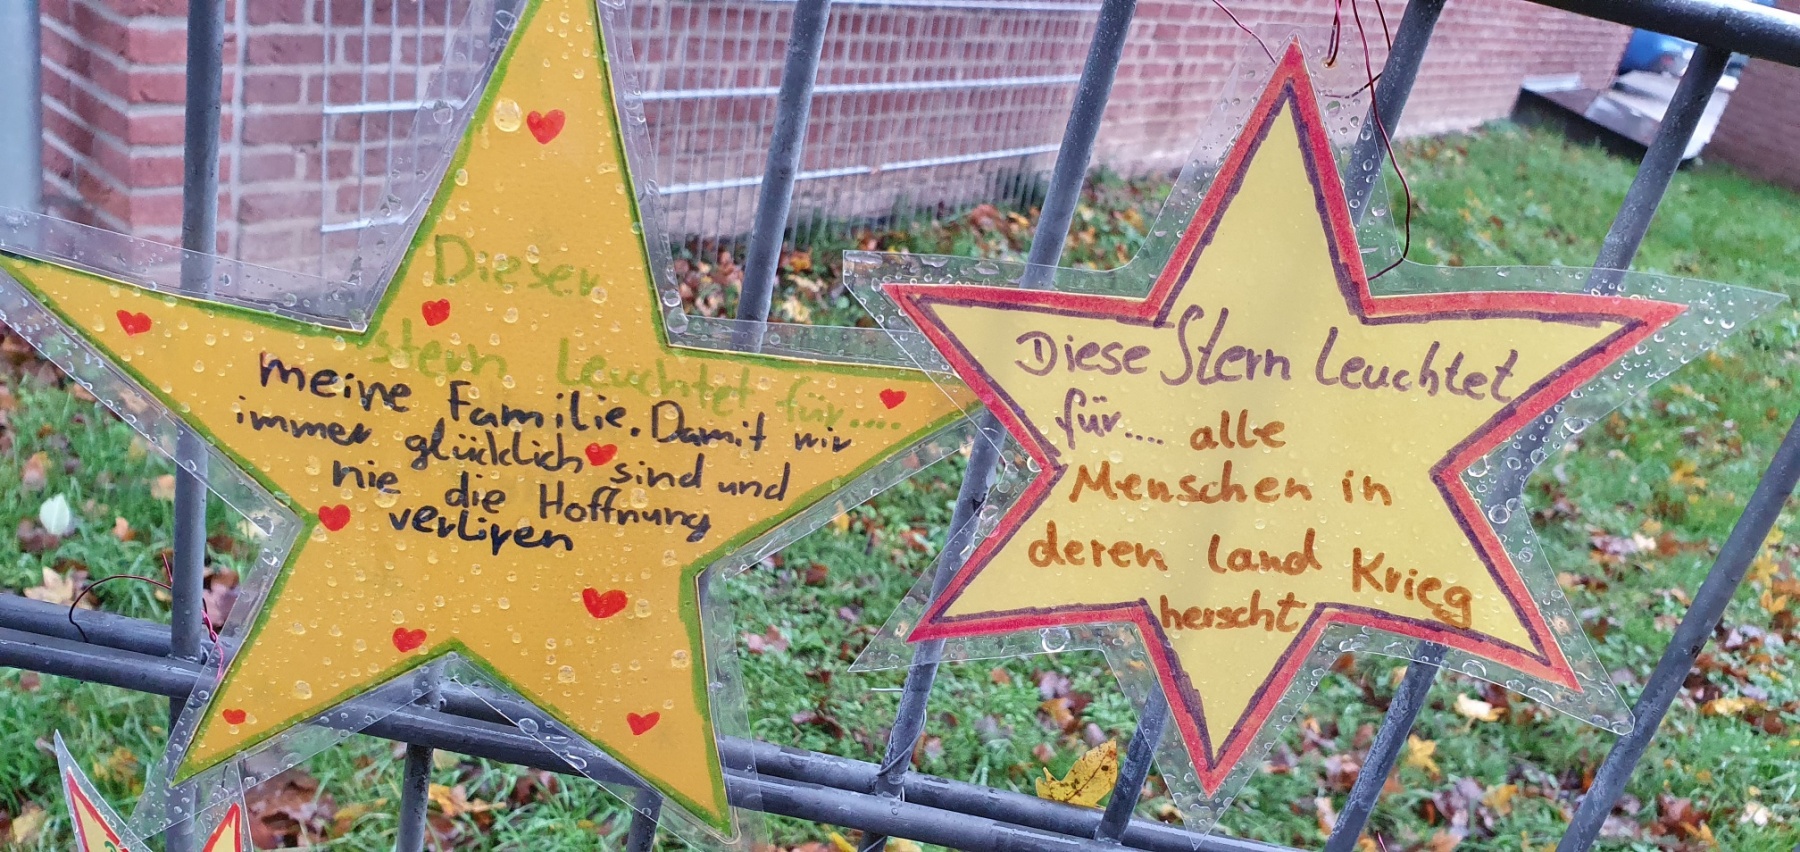 Dieser
stern leuchtet für....
meine Familie. Damit wir
immer glücklich sind und
nie die Hoffnung
verliren
Diese Stern leuchtet
für.... alle
Menschen in
deren land Krieg
herscht